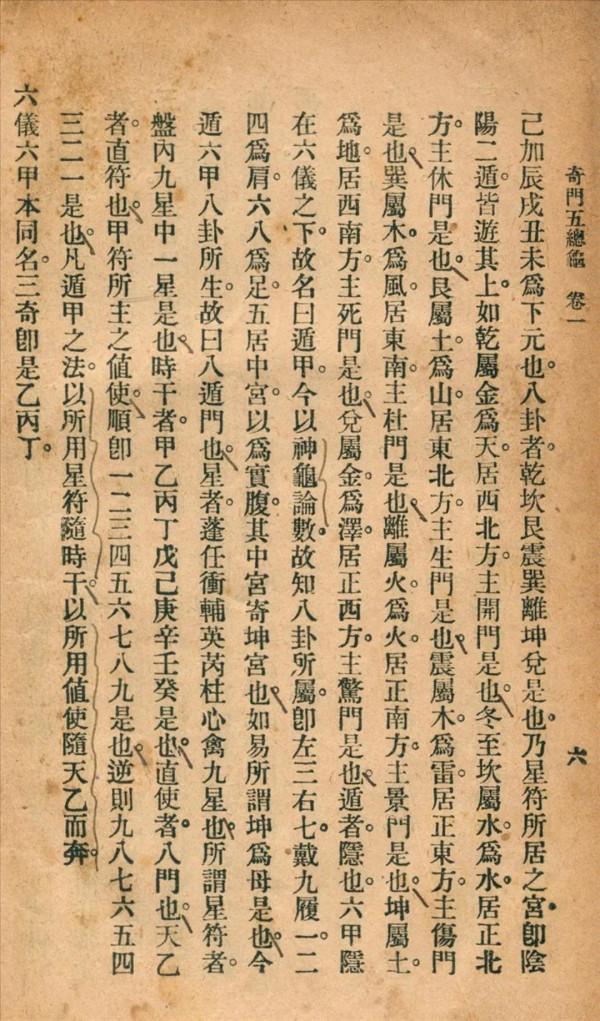 奇門五總龜　卷一
六
己加辰戌丑未爲下元也。八卦者。乾坎艮震巽離坤兌是也。乃星符所居之宮。卽陰
陽二遁。皆遊其上。如乾屬金。爲天。居西北方。主開門是也。冬至坎屬水。爲水。居正北
方。主休門是也。艮屬土。爲山。居東北方。主生門是也。震屬木。爲雷。居正東方。主傷門
是也。巽屬木。爲風。居東南。主杜門是也。離屬火。爲火。居正南方。主景門是也。坤屬土。
爲地。居西南方。主死門是也。兌屬金。爲澤。居正西方。主驚門是也。遁者。隱也。六甲隱
在六儀之下。故名曰遁甲。今以神龜論數。故知八卦所屬。卽左三右七。戴九履一。二
四爲肩。六八爲足。五居中宮。以爲實腹。其中宮寄坤宮也。如易所謂坤爲母是也。今
遁六甲八卦所生。故曰八遁門也。星者。蓬任衝輔英芮柱心禽九星也。所謂星符者。
盤內九星中一星是也。時干者。甲乙丙丁戊己庚辛壬癸是也。直使者。八門也。天乙
者。直符也。甲符所主之值使。順卽一二三四五六七八九是也。逆則九八七六五四
三二一是也。凡遁甲之法。以所用星符隨時干。以所用値使隨天乙而奔。
六儀六甲本同名。三奇卽是乙丙丁。